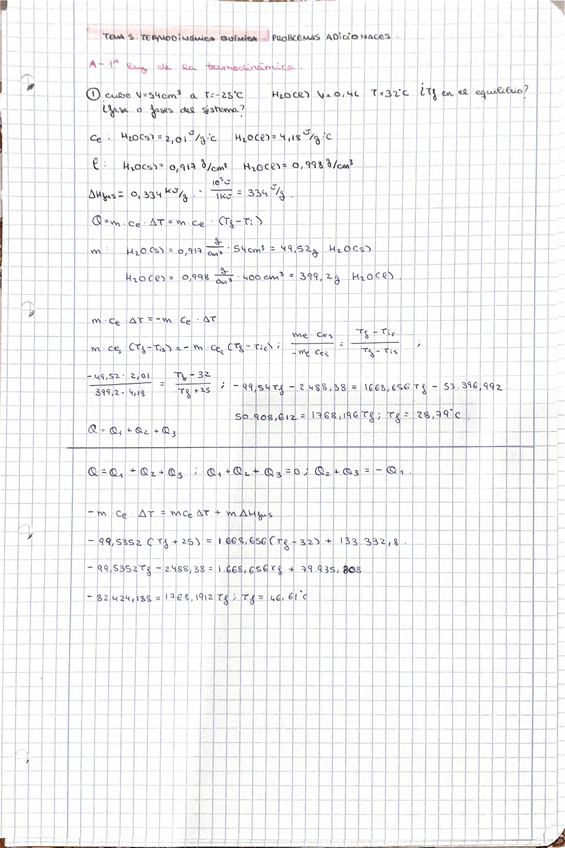 TEMA 5. TERMODINÁMICA QUÍMICA. PROBLEMAS ADICIONALES.
A - 1ª ley de la termodinámica.
① cubo V=54cm³ a T=-25°C H₂O(l) V=0,4L T=32°C ¿Tf en el equilibrio?
¿fase o fases del sistema?
Ce: H₂O(s) = 2,01 J/g·°C H₂O(l) = 4,18 J/g·°C
ρ: H₂O(s) = 0,917 g/cm³ H₂O(l) = 0,998 g/cm³
ΔHfus = 0,334 kJ/g · 10³J/1kJ = 334 J/g.
Q = m · ce · ΔT = m ce · (Tf - Ti)
m: H₂O(s) = 0,917 g/cm³ · 54cm³ = 49,52g H₂O(s)
H₂O(l) = 0,998 g/cm³ · 400cm³ = 399,2g H₂O(l).
m · ce ΔT = -m · ce · ΔT
m · ces (Tf - Tis) = -m · cel (Tf - Til); ms ces / -ml cel = Tf - Til / Tf - Tis ,
-49,52 · 2,01 / 399,2 · 4,18 = Tf - 32 / Tf + 25 ; -99,54Tf - 2.488,38 = 1668,656Tf - 53.396,992
50.908,612 = 1768,196Tf ; Tf = 28,79°C.
Q = Q₁ + Q₂ + Q₃
Q = Q₁ + Q₂ + Q₃ ; Q₁ + Q₂ + Q₃ = 0 ; Q₂ + Q₃ = -Q₁.
-m · ce · ΔT = m ce ΔT + m ΔHfus
-99,5352 (Tf + 25) = 1.668,656 (Tf - 32) + 133.332,8.
-99,5352Tf - 2488,38 = 1.668,656Tf + 79.935,808
-82.424,188 = 1768,1912 Tf ; Tf = 46,61°C